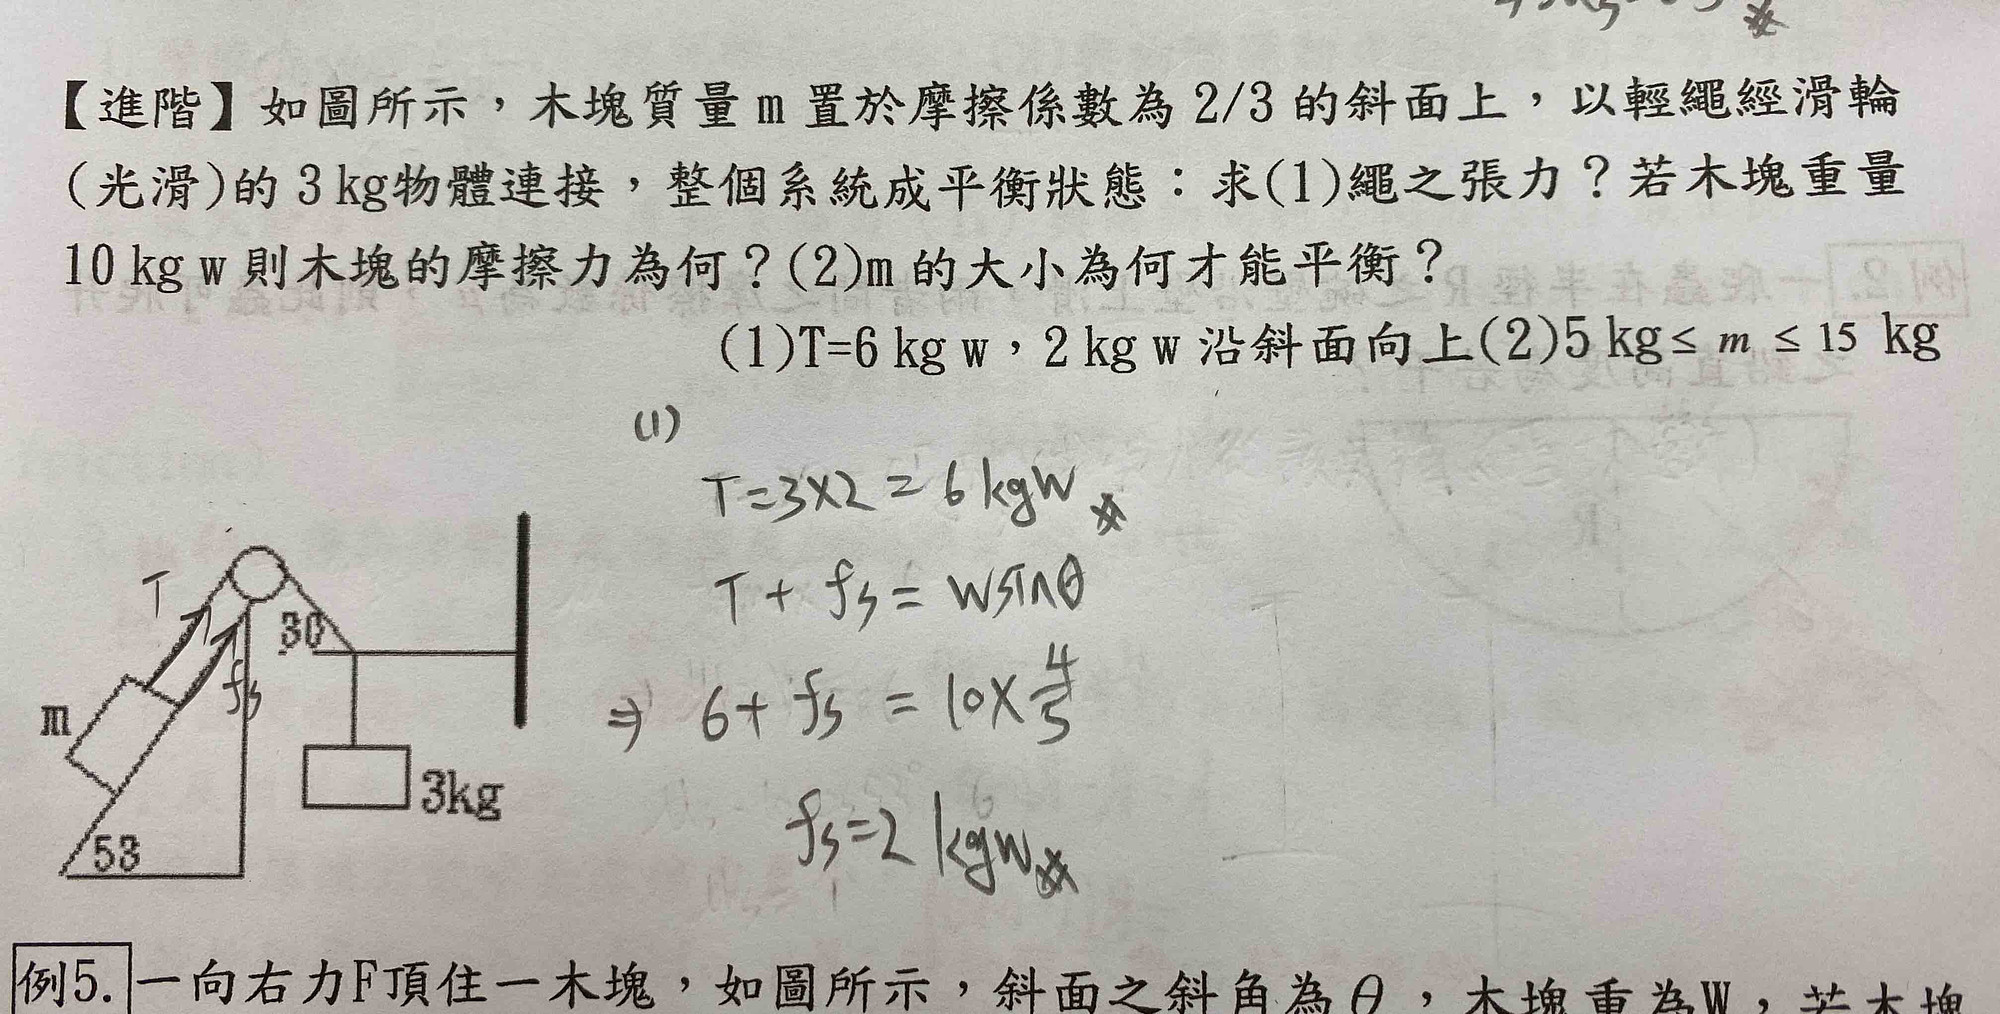 【進階】如圖所示，木塊質量 m 置於摩擦係數為 2/3 的斜面上，以輕繩經滑輪
(光滑)的 3 kg物體連接，整個系統成平衡狀態：求(1)繩之張力？若木塊重量
10 kg w 則木塊的摩擦力為何？(2)m 的大小為何才能平衡？
(1)T=6 kg w，2 kg w 沿斜面向上(2)5 kg≤ m ≤ 15 kg
(1)
T=3×2 = 6 kgw
T + fs = wsinθ
⇒ 6+ fs = 10× 4/5
fs=2 kgw
T
30
fs
m
3kg
53
例5. 一向右力F頂住一木塊，如圖所示，斜面之斜角為θ，木塊重為W，若木塊